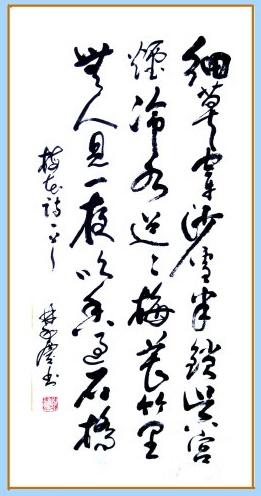 細草穿沙雪半銷吳宮
煙冷水迢〻梅花竹里
無人見一夜吹香過石橋
梅花詩一首
書